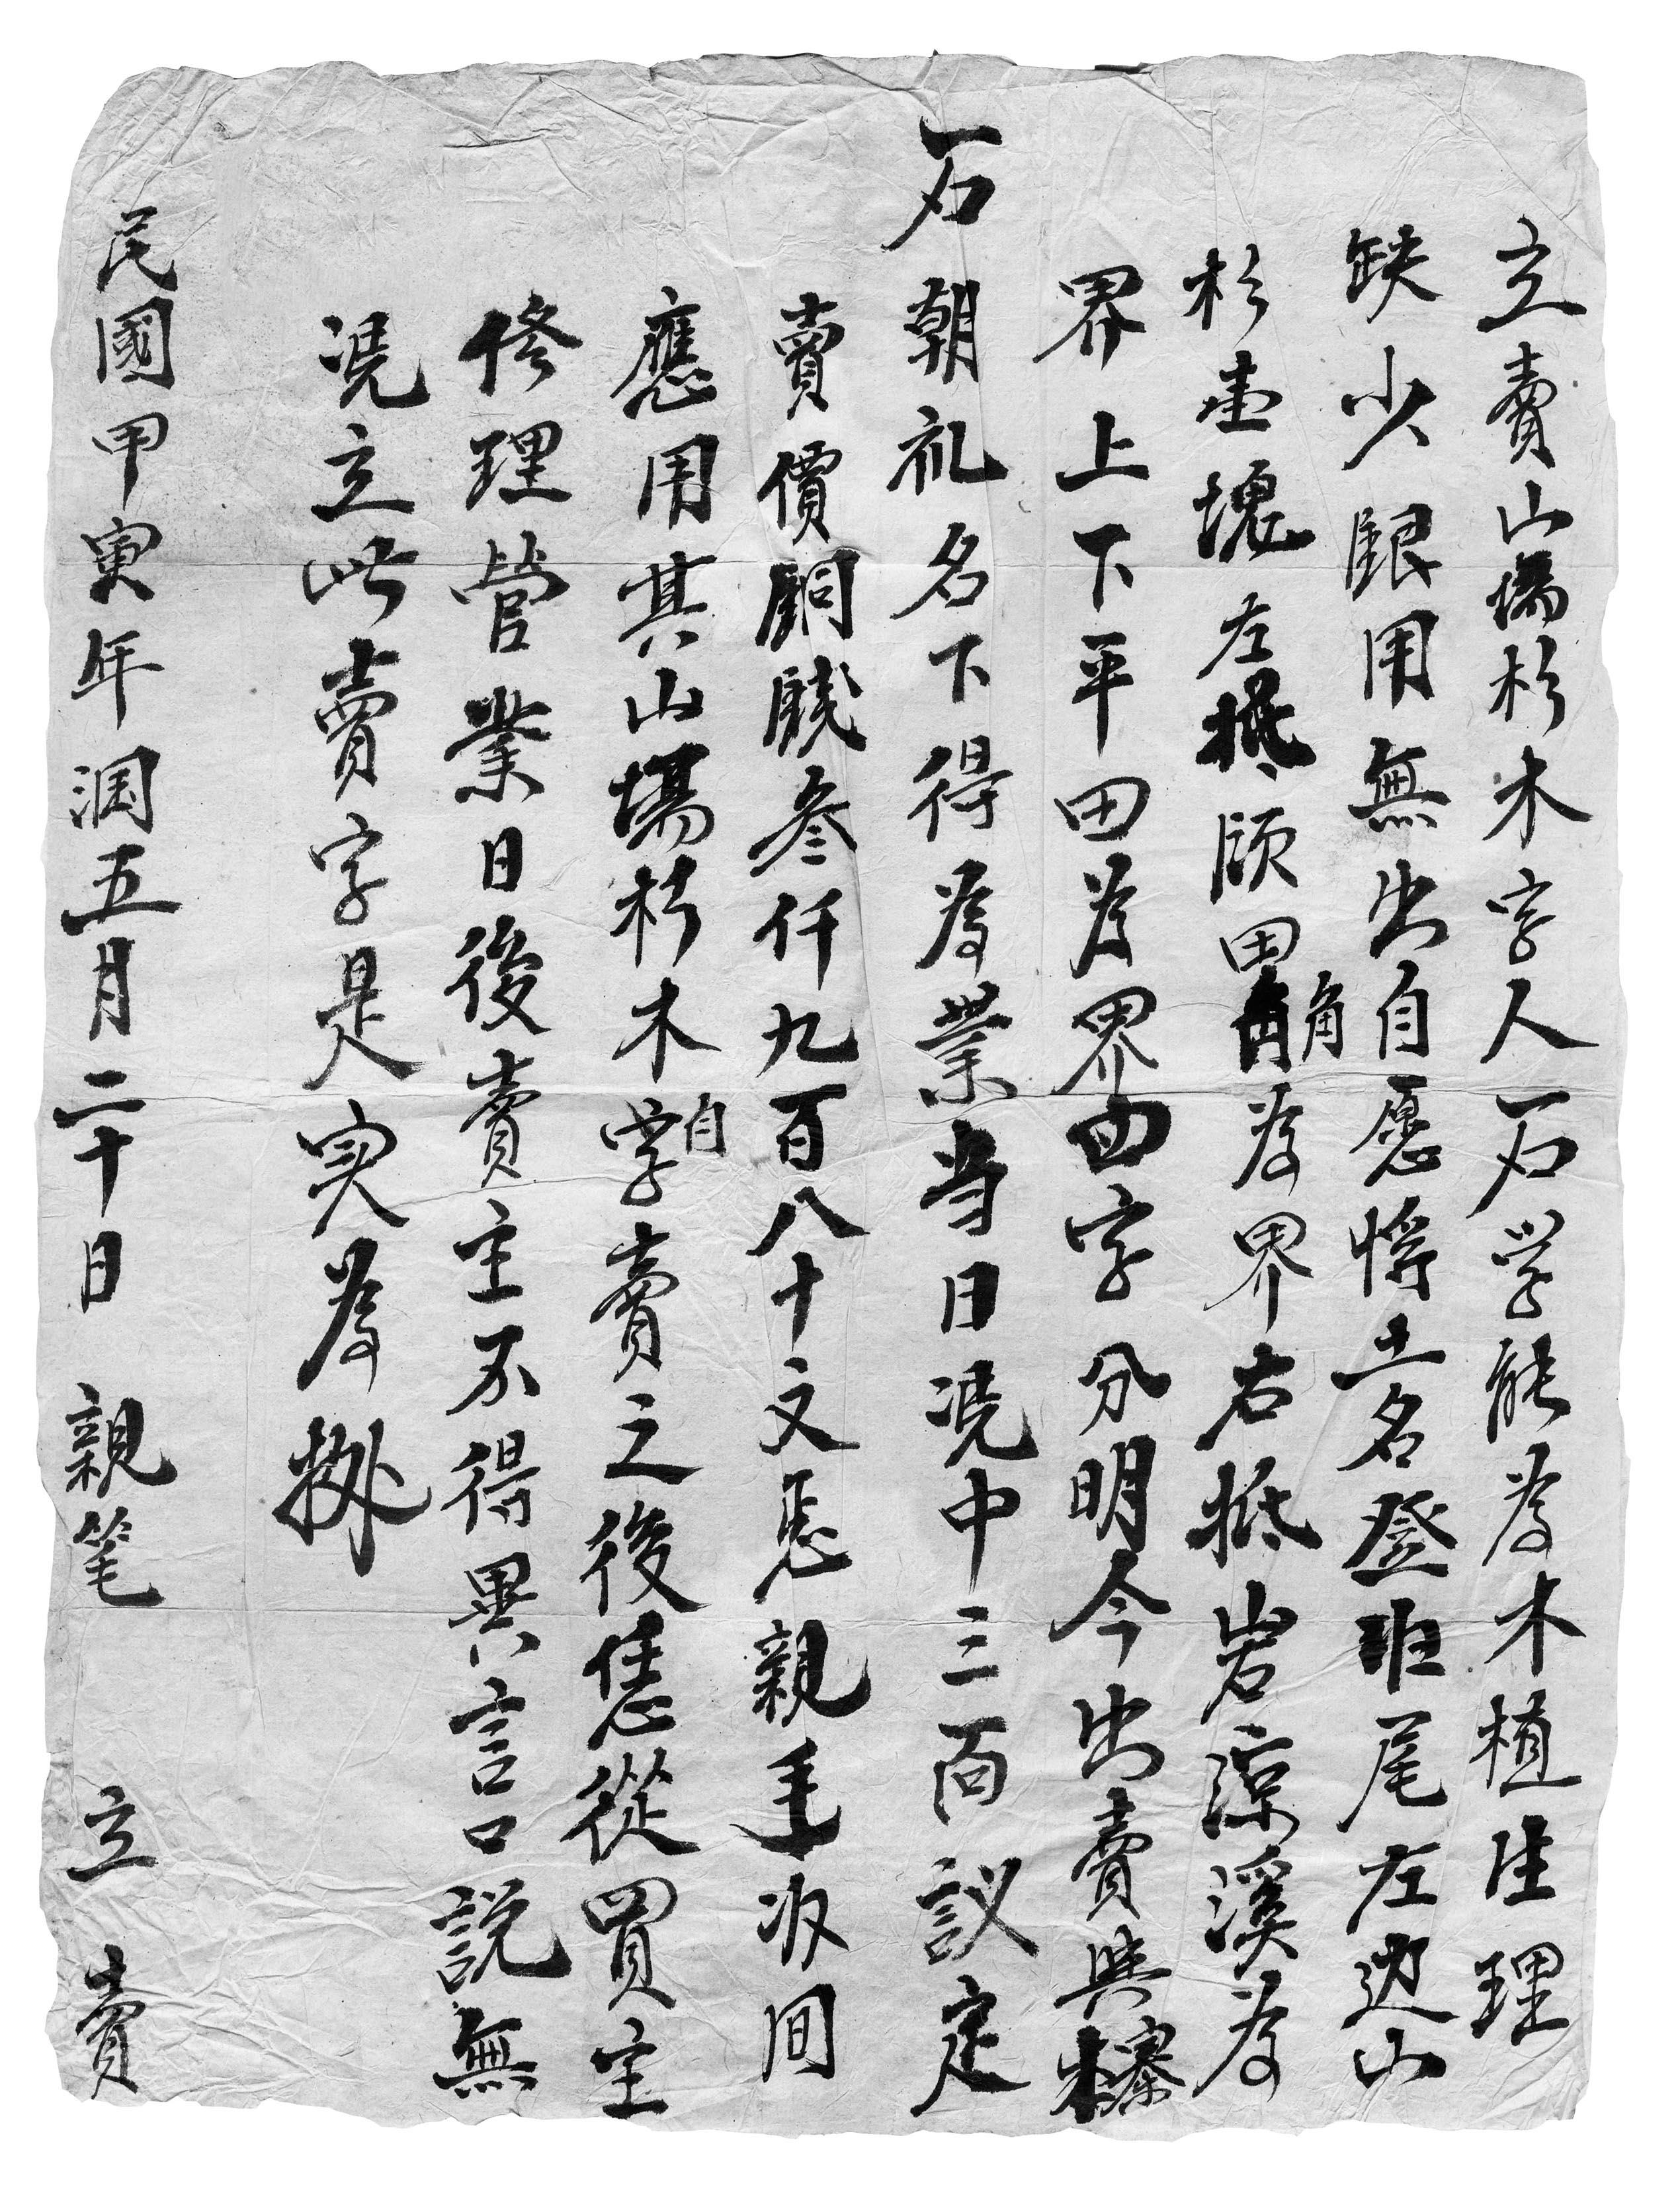 立賣山場杉木字人石学能為木植生理
缺少銀用無出自愿将土名登班尾左边山
杉壹塊左抵頋田角為界右抵岩涼溪為
界上下平田為界四字分明今出賣與寨
石朝礼名下得為業当日凴中三面議定
賣價銅錢叁仟九百八十文惪親手収囬
應用其山場杉木自学賣之後恁從買主
修理營業日後賣主不得異言口説無
凴立此賣字是实為拠
民國甲寅年润五月二十日 親笔 立 賣